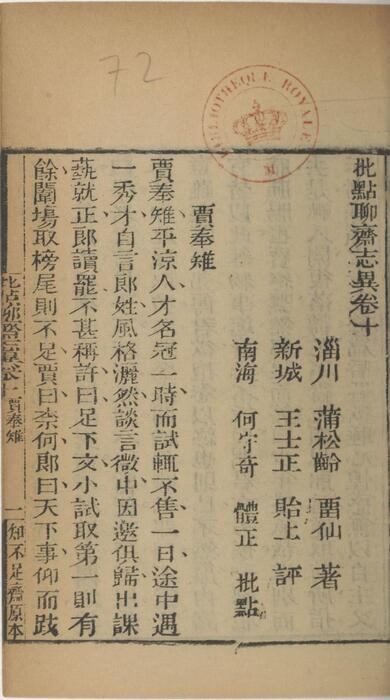 72
BIBLIOTHEQUE ROYALE
批㸃聊齋志異卷十
淄川 蒲松齡 畱仙 著
新城 王士正 貽上 評
南海 何守奇 體正 批㸃
賈奉雉
賈奉雉平涼人才名冠一時而試輒不售一日途中遇
一秀才自言郎姓風格灑然談言微中因邀俱歸出課
蓺就正郎讀罷不甚稱許曰足下文小試取第一則有
餘闈場取榜尾則不足賈曰柰何郎曰天下事仰而跂
批㸃聊齋志異卷十 賈奉雉 一 知不足齋原本